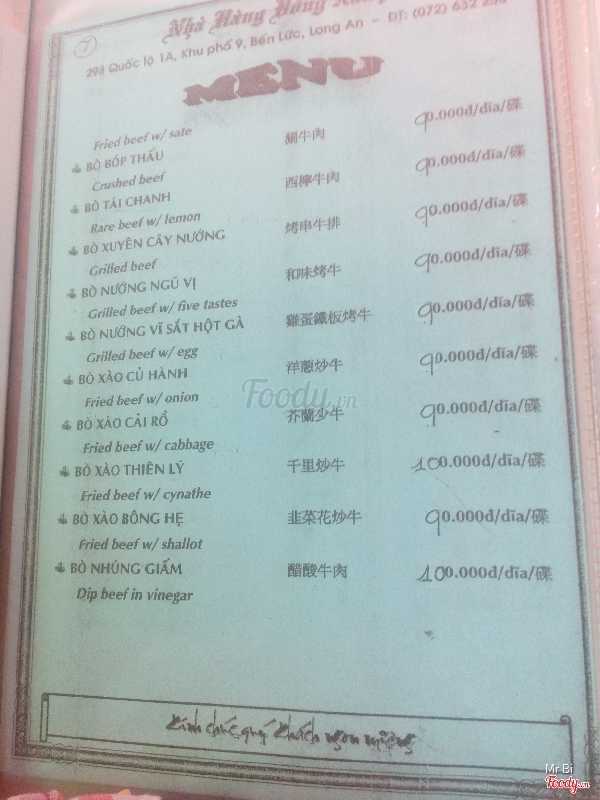 7
Nhà Hàng
298 Quốc lộ 1A, Khu phố 9, Bến Lức, Long An - ĐT: (072) 632
MENU
Fried beef w/ sate
BÒ BÓP THẤU 牛肉 90.000đ/dĩa/碟
Crushed beef
BÒ TÁI CHANH 西檸牛肉 90.000đ/dĩa/碟
Rare beef w/ lemon
BÒ XUYÊN CÂY NƯỚNG 烤串牛排 90.000đ/dĩa/碟
Grilled beef
BÒ NƯỚNG NGŨ VỊ 和味烤牛 90.000đ/dĩa/碟
Grilled beef w/ five tastes
BÒ NƯỚNG VĨ SẮT HỘT GÀ 雞蛋鐵板烤牛 90.000đ/dĩa/碟
Grilled beef w/ egg
BÒ XÀO CỦ HÀNH 洋蔥炒牛 90.000đ/dĩa/碟
Fried beef w/ onion
BÒ XÀO CẢI RỔ 芥蘭少牛 90.000đ/dĩa/碟
Fried beef w/ cabbage
BÒ XÀO THIÊN LÝ 千里炒牛 100.000đ/dĩa/碟
Fried beef w/ cynathe
BÒ XÀO BÔNG HẸ 韭菜花炒牛 90.000đ/dĩa/碟
Fried beef w/ shallot
BÒ NHÚNG GIẤM 醋酸牛肉 100.000đ/dĩa/碟
Dip beef in vinegar
Kính chúc quý khách ngon miệng
Foody.vn
Mr Bi
Foody.vn